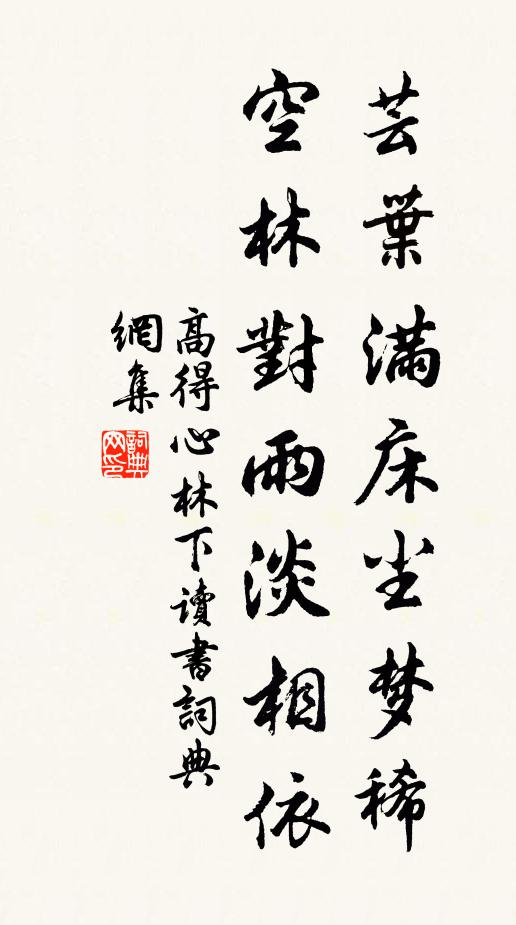 芸葉満床尘梦稀
空林對雨淡相依
高得心林下讀書詞典
網集
詞典网印